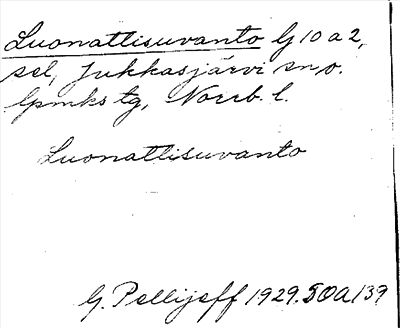 Luonattisuvanto lj 10 a 2,
sel, Jukkasjärvi sn, o.
lpmks tg, Norrb. l.
Luonattisuvanto
G. Pellijeff 1929. 50a/39